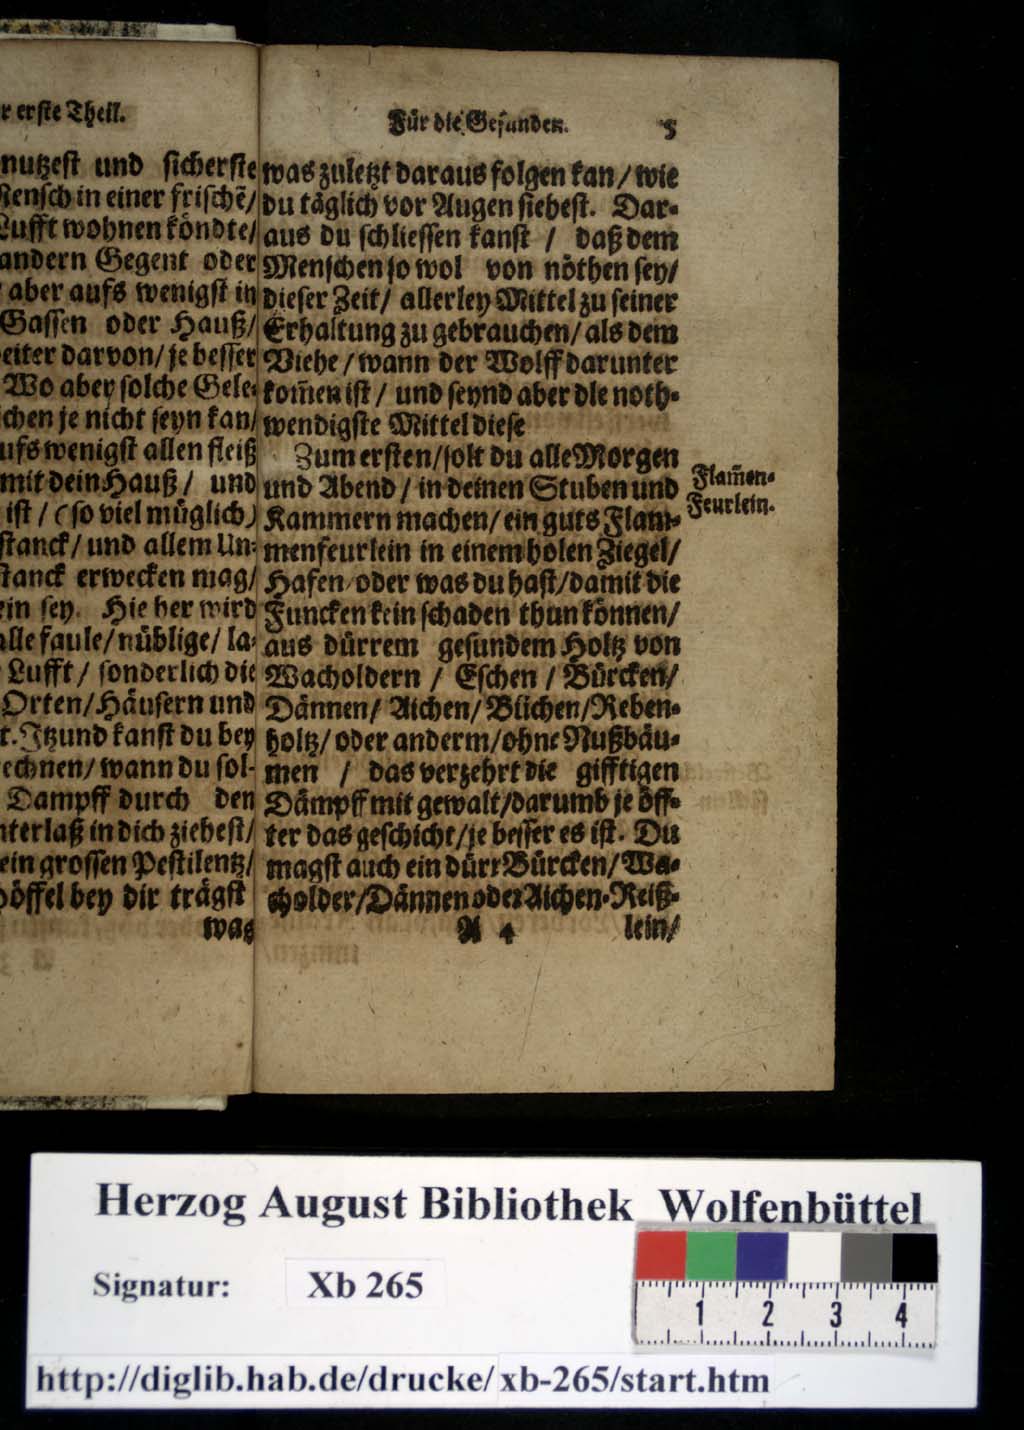 r erste Theil.
nutzest und sicherste
Mensch in einer frischẽ/
Lufft wohnen köndte/
andern Gegent oder
aber aufs wenigst in
Gassen oder Hauß/
eiter darvon/ je besser
Wo aber solche Gele-
chen je nicht seyn kan/
ufs wenigst allen fleiß
mit dein Hauß/ und
ist/ (so viel müglich)
stanck/ und allem Un-
stanck erwecken mag/
ein sey. Hie her wird
alle faule/ nüblige/ la-
Lufft/ sonderlich die
Orten/ Häusern und
t. Itzund kanst du bey
echnen/ wann du sol-
Dampff durch den
nterlaß in dich ziehest/
ein grossen Pestilentz/
öffel bey dir trägst
was
Für die Gesunden. 5
was zuletzt daraus folgen kan/ wie
du täglich vor Augen siehest. Dar-
aus du schliessen kanst / daß dem
Menschen so wol von nöthen sey/
dieser Zeit/ allerley Mittel zu seiner
Erhaltung zu gebrauchen/ als dem
Viehe/ wann der Wolff darunter
kom̃en ist/ und seynd aber die noth-
wendigste Mittel diese
Zum ersten/ solt du alle Morgen
und Abend/ in deinen Stuben und
Kammern machen/ ein guts Flam-
menfeurlein in einem holen Ziegel/
Hafen/ oder was du hast/ damit die
Funcken kein schaden thun können/
aus dürrem gesundem Holtz von
Wacholdern / Eschen / Bürcken/
Dännen/ Aichen/ Büchen/ Reben-
holtz/ oder anderm/ ohne Nußbäu-
men / das verzehrt die gifftigen
Dämpff mit gewalt/ darumb je öff-
ter das geschicht/ je besser es ist. Du
magst auch ein dürr Bürcken/ Wa-
cholder/ Dännen oder Aichen-Reiß-
A 4 lein/
Flam̃en-
Feurlein.
Herzog August Bibliothek Wolfenbüttel
Signatur: Xb 265
1 2 3 4
http://diglib.hab.de/drucke/xb-265/start.htm